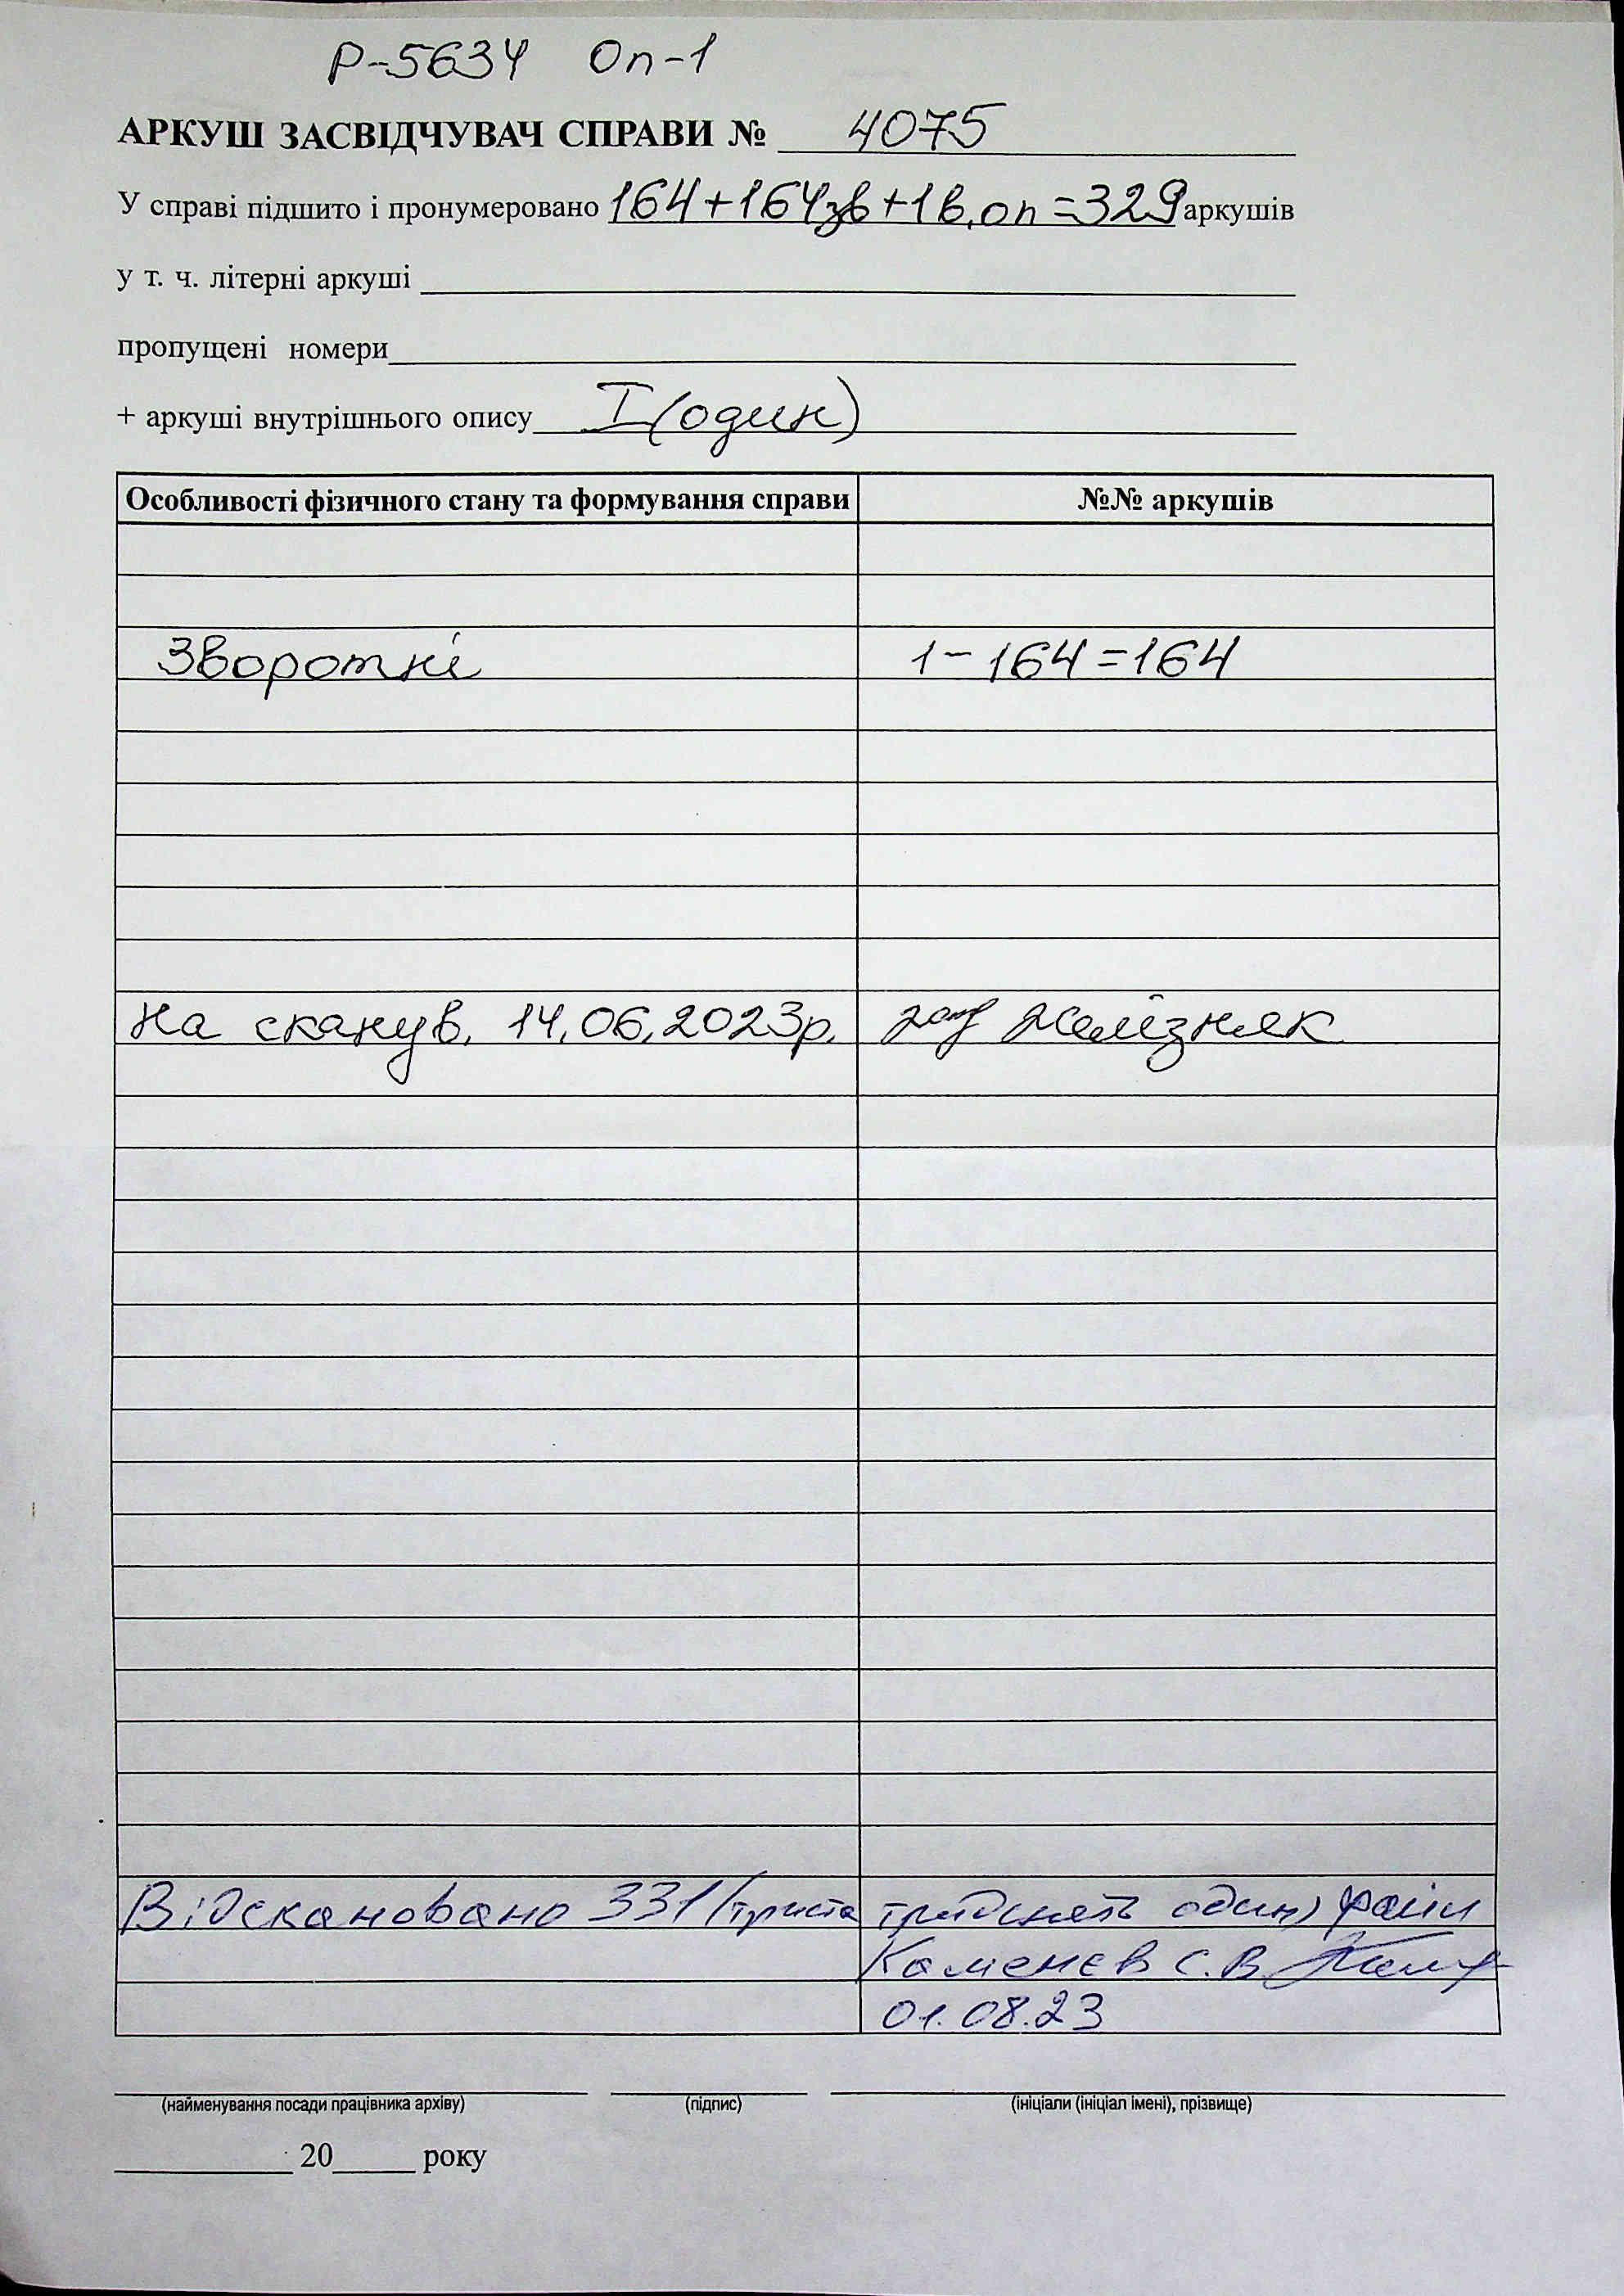 Р-5634 Оп-1
АРКУШ ЗАСВІДЧУВАЧ СПРАВИ № 4075
У справі підшито і пронумеровано 164+164зв+1в.оп=329 аркушів
у т. ч. літерні аркуші
пропущені номери
+ аркуші внутрішнього опису I (один)
Особливості фізичного стану та формування справи №№ аркушів
Зворотні 1-164=164
На сканув. 14.06.2023р. Желізняк
Відскановано 331 (триста тридцять один) файл
Каменєв С.В.
01.08.23
(найменування посади працівника архіву) (підпис) (ініціали (ініціал імені), прізвище)
20 року